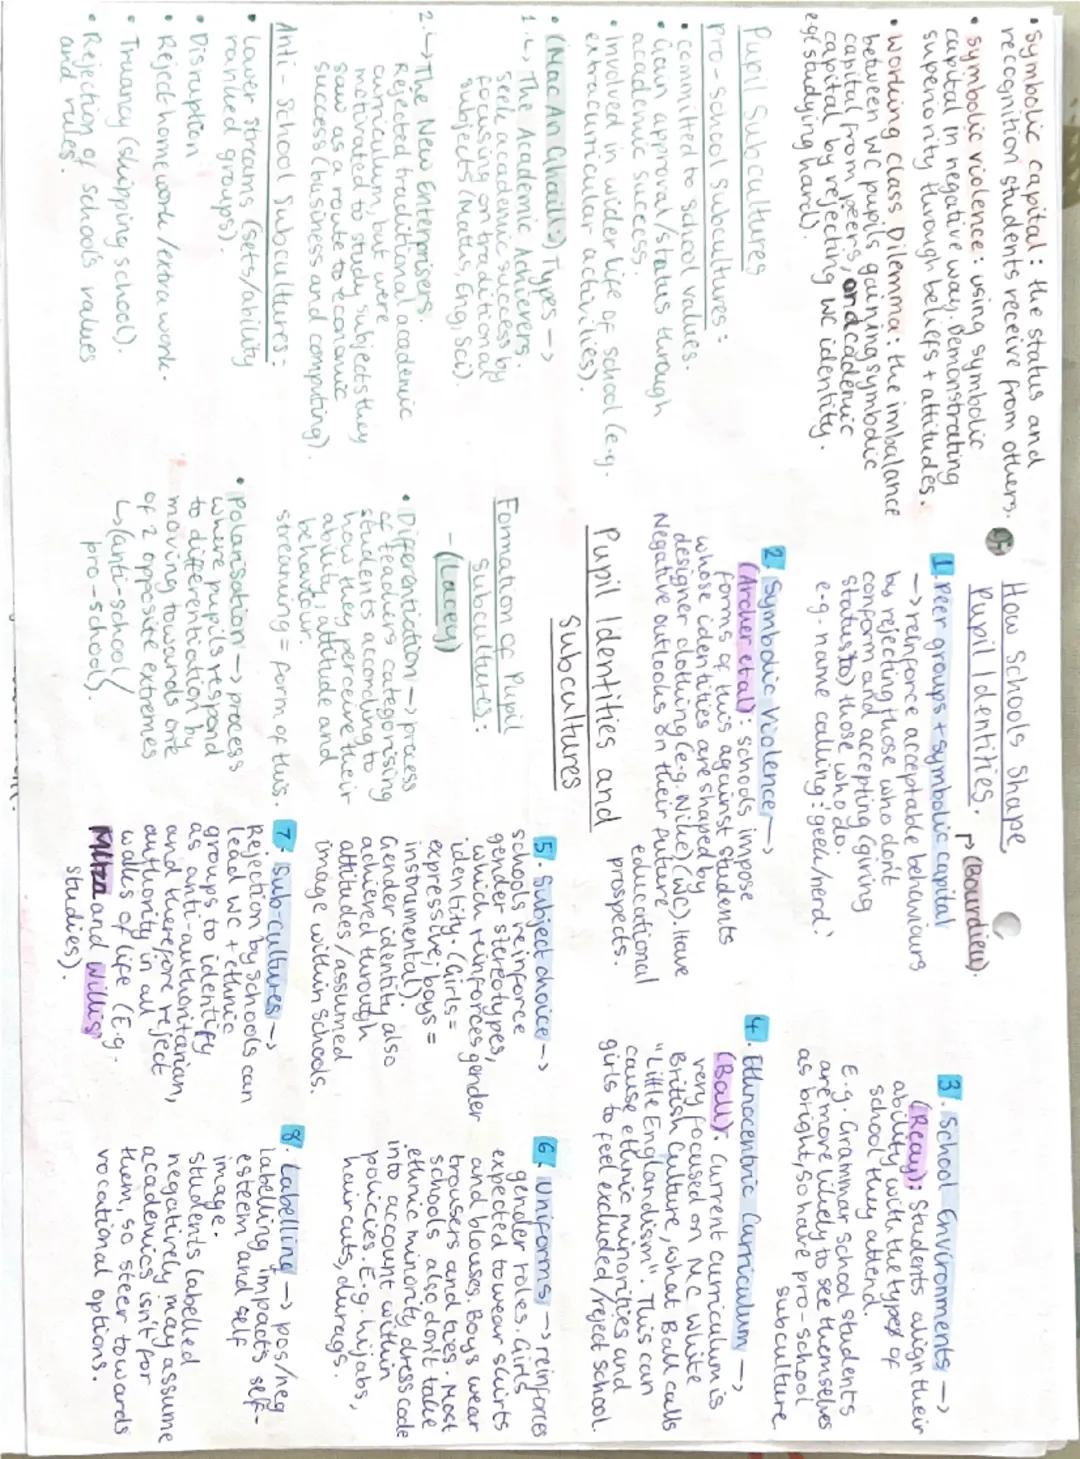 • symbolic capital: the status and
recognition students receive from others.
• symbolic violence: using symbolic
capital in negative way, demonstrating
superiority through beliefs + attitudes.
• working class Dilemma: the imbalance
between WC pupils gaining symbolic
capital from peers, and academic
capital by rejecting WC identity.
eg (studying hard).
Pupil Subcultures
pro-school subcultures:
• committed to school values.
• Gain approval/status through
academic success.
• involved in wider life of school (e.g.
extracurricular activities).
• (Mac An Ghaill) Types →
1. ↳ The Academic Achievers.
seek academic success by
focusing on traditional
subjects (Maths, Eng, Sci).
2. ↳ The New Enterprisers.
Rejected traditional academic
curriculum, but were
motivated to study subjects they
saw as a route to economic
success (business and computing).
Anti-school subcultures:
• Lower streams (sets/ability
ranked groups).
• Disruption
• Reject homework/extra work.
• Truancy (skipping school).
• Rejection of school's values
and rules.
How Schools Shape
Pupil Identities.
↱ (Bourdieu).
1. Peer groups + symbolic capital
→ reinforce acceptable behaviours
by rejecting those who don't
conform and accepting (giving
status to) those who do.
e.g. name calling: 'geek/nerd.'
2. Symbolic Violence →
(Archer et al): schools impose
forms of this against students
whose identities are shaped by
designer clothing (e.g. Nike) (WC), have
Negative outlooks on their future
educational
prospects.
Pupil Identities and
Subcultures
Formation of Pupil
Subcultures:
- (Lacey)
• Differentiation → process
of teachers categorising
students according to
how they perceive their
ability, attitude and
behaviour.
streaming = form of this.
• Polarisation → process
where pupils respond
to differentiation by
moving towards one
of 2 opposite extremes
↳ (anti-school/
pro-school).
3. School Environments →
(Reay): Students align their
ability with the type of
school they attend.
E.g. Grammar school students
are more likely to see themselves
as bright, so have pro-school
subculture.
4. Ethnocentric Curriculum →
(Ball). Current curriculum is
very focused on MC white
British Culture, what Ball calls
"Little Englandism". This can
cause ethnic minorities and
girls to feel excluded/reject school.
5. Subject choice →
schools reinforce
gender stereotypes,
which reinforces gender
identity. (Girls =
expressive; boys =
instrumental).
Gender identity also
achieved through
attitudes/assumed
image within schools.
6. Uniforms → reinforces
gender roles. Girls
expected to wear skirts
and blouses, Boys wear
trousers and ties. Most
schools also don't take
ethnic minority dress code
into account within
policies. E.g. hijabs,
haircuts, durags.
7. Sub-cultures →
Rejection by schools can
lead WC + ethnic
groups to identify
as anti-authoritarian,
and therefore reject
authority in all
walks of life (E.g.
Mirza and Willis
studies).
8. Labelling → pos/neg
labelling impacts self-
esteem and self
image.
Students labelled
negatively may assume
academics isn't for
them, so steer towards
vocational options.